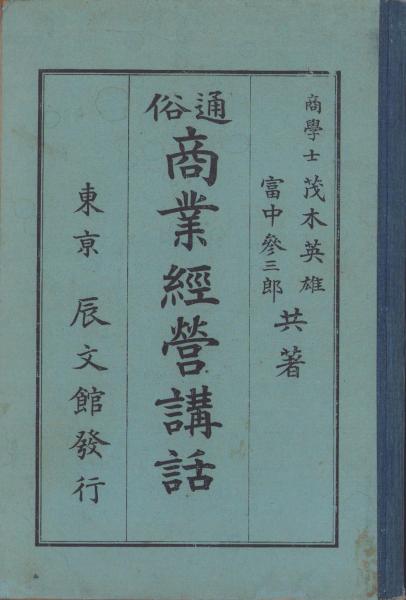 商學士 茂木英雄
富中參三郎
共著
通俗
商業經營講話
東京 辰文館發行